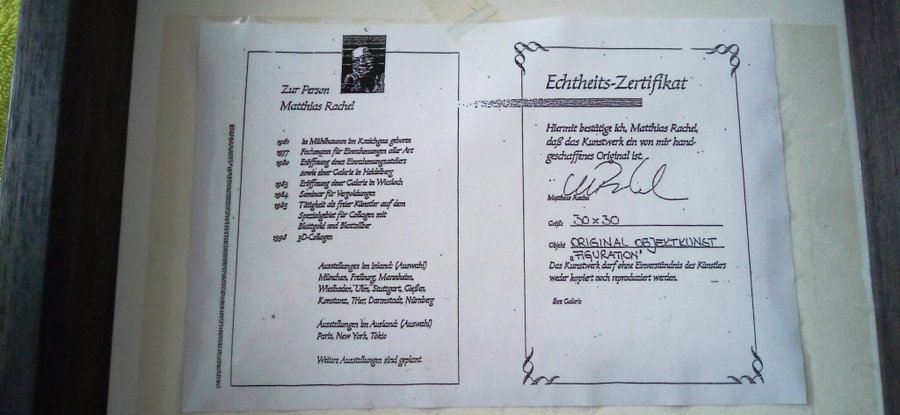 Zur Person
Matthias Rachel
1961 in Mühlhausen im Kraichgau geboren
1977 Fachmann für Einrahmungen aller Art
1980 Eröffnung eines Einrahmungsateliers
sowie einer Galerie in Heidelberg
1983 Eröffnung einer Galerie in Wiesloch
1984 Seminar für Vergoldungen
1985 Tätigkeit als freier Künstler auf dem
Spezialgebiet für Collagen mit
Blattgold und Blattsilber
1998 3D-Collagen
Ausstellungen im Inland: (Auswahl)
München, Freiburg, Mannheim,
Wiesbaden, Ulm, Stuttgart, Gießen,
Konstanz, Trier, Darmstadt, Nürnberg
Ausstellungen im Ausland: (Auswahl)
Paris, New York, Tokio
Weitere Ausstellungen sind geplant
Echtheits-Zertifikat
Hiermit bestätige ich, Matthias Rachel,
daß das Kunstwerk ein von mir hand-
geschaffenes Original ist.
Matthias Rachel
Größe: 30 x 30
Objekt: ORIGINAL OBJEKTKUNST
„FIGURATION"
Das Kunstwerk darf ohne Einverständnis des Künstlers
weder kopiert noch reproduziert werden.
Ihre Galerie